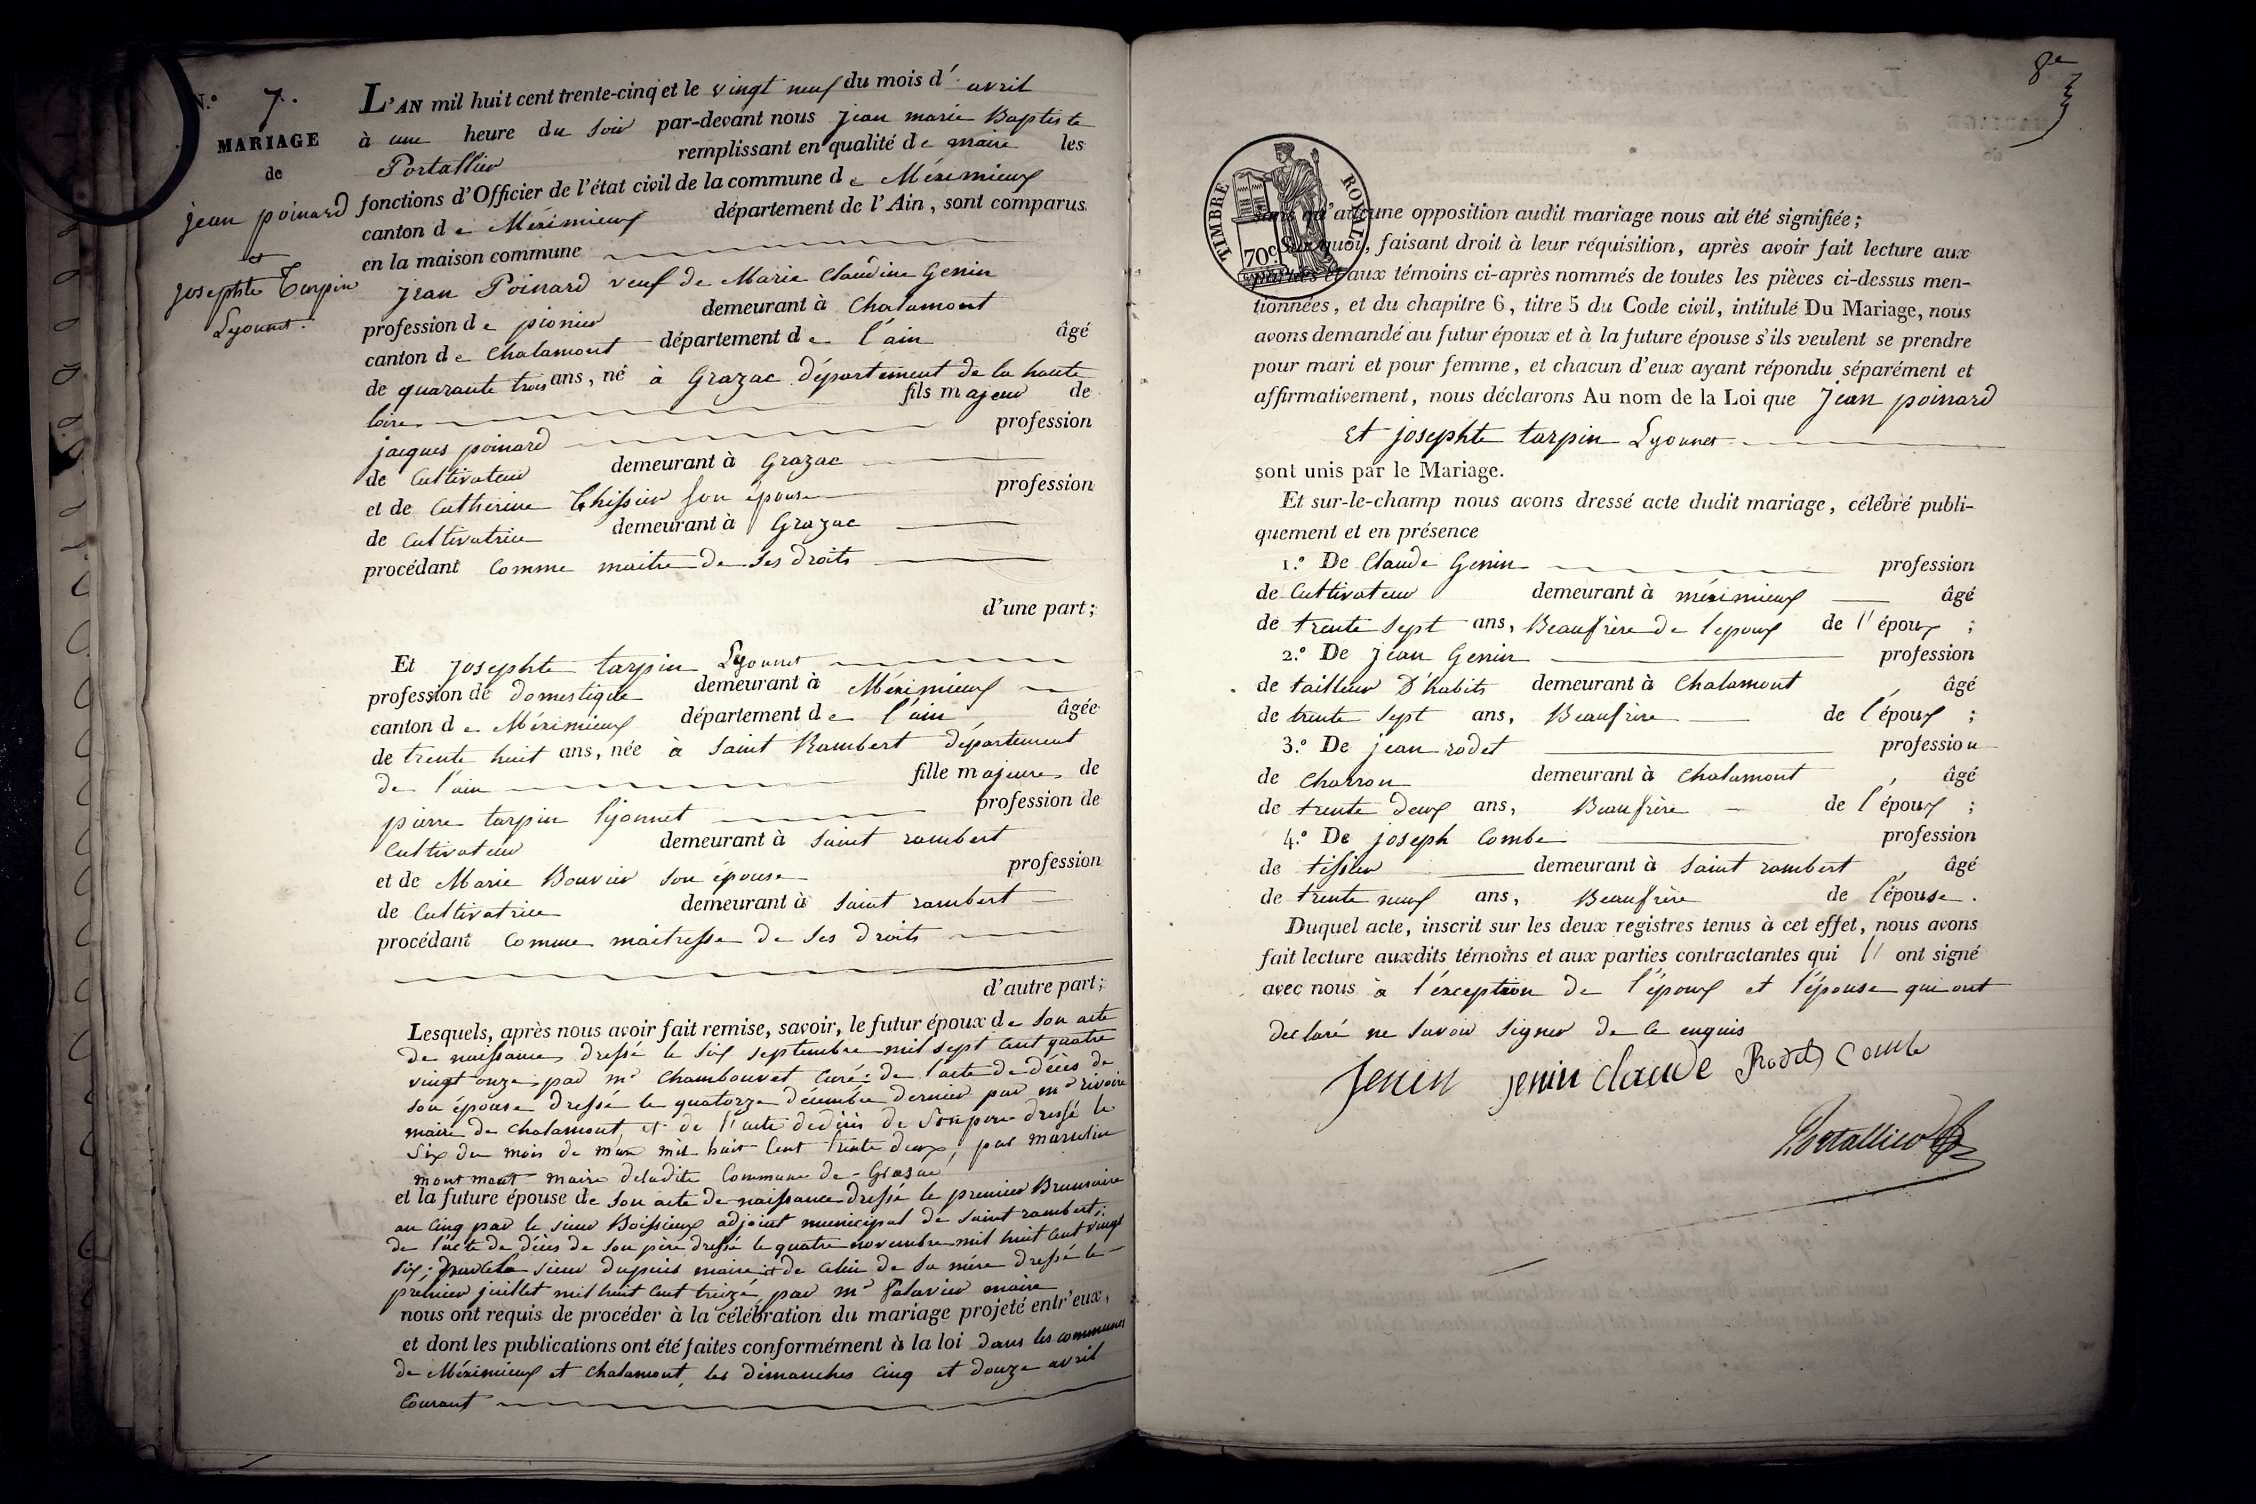 N.º 7.
MARIAGE
de
jean poinard
et
josephte Tarpin
Lyonnet.
L'AN mil huit cent trente-cinq et le vingt neuf du mois d'avril
à une heure du soir par-devant nous jean marie Baptiste
Portallier remplissant en qualité de maire les
fonctions d'Officier de l'état civil de la commune de Méximieux
canton de Méximieux département de l'Ain, sont comparus
en la maison commune
jean Poinard veuf de Marie Claudine Genin
profession de pionier demeurant à Chalamont
canton de Chalamont département de l'ain âgé
de quarante trois ans, né à Grazac département de la haute
loire fils majeur de
jacques poinard profession
de Cultivateur demeurant à Grazac
et de Catherine Theissier son épouse profession
de Cultivatrice demeurant à Grazac
procédant Comme maitre de ses droits
d'une part;
Et josephte tarpin Lyonnet
profession de domestique demeurant à Méximieux
canton de Méximieux département de l'ain âgée
de trente huit ans, née à Saint Rambert département
de l'ain fille majeure de
pierre tarpin lyonnet profession de
Cultivateur demeurant à Saint rambert
et de Marie Bouvier son épouse profession
de Cultivatrice demeurant à Saint rambert
procédant Comme maitresse de ses droits
d'autre part;
Lesquels, après nous avoir fait remise, savoir, le futur époux de son acte
de naissance dressé le six septembre mil sept cent quatre
vingt onze par mr Chambouvet Curé; de l'acte de décès de
son épouse dressé le quatorze décembre dernier par mr rivoire
maire de Chalamont, et de l'acte de décès de son père dressé le
six du mois de mars mil huit Cent trente deux, par marcelin
mont maire de ladite Commune de Grasac
et la future épouse de son acte de naissance dressé le premier Brumaire
an Cinq par le sieur Boissieux adjoint municipal de Saint rambert;
de l'acte de décès de son père dressé le quatre novembre mil huit Cent vingt
six; par le sieur dupuis maire et de celui de sa mère dressé le
premier juillet mil huit Cent treize, par mr maire
nous ont requis de procéder à la célébration du mariage projeté entr'eux,
et dont les publications ont été faites conformément à la loi dans les communes
de Méximieux et Chalamont, les dimanches Cinq et douze avril
Courant
8e
TIMBRE ROYAL
70c
sans qu'aucune opposition audit mariage nous ait été signifiée;
Sur quoi, faisant droit à leur réquisition, après avoir fait lecture aux
parties et aux témoins ci-après nommés de toutes les pièces ci-dessus men-
tionnées, et du chapitre 6, titre 5 du Code civil, intitulé Du Mariage, nous
avons demandé au futur époux et à la future épouse s'ils veulent se prendre
pour mari et pour femme, et chacun d'eux ayant répondu séparément et
affirmativement, nous déclarons Au nom de la Loi que Jean poinard
Et josephte tarpin Lyonnet
sont unis par le Mariage.
Et sur-le-champ nous avons dressé acte dudit mariage, célébré publi-
quement et en présence
1.º De Claude Genin profession
de Cultivateur demeurant à méximieux âgé
de trente sept ans, Beaufrère de l'epoux de l'époux;
2.º De jean Genin profession
de tailleur D'habits demeurant à Chalamont, âgé
de trente sept ans, Beaufrère de l'époux;
3.º De jean rodet profession
de Charron demeurant à Chalamont, âgé
de trente deux ans, Beaufrère de l'époux;
4.º De joseph Combe profession
de tissier demeurant à Saint rambert, âgé
de trente neuf ans, Beaufrère de l'épouse.
Duquel acte, inscrit sur les deux registres tenus à cet effet, nous avons
fait lecture auxdits témoins et aux parties contractantes qui l' ont signé
avec nous à l'exception de l'époux et l'épouse qui ont
declaré ne savoir signer de ce enquis
Jenin jenin claude Rodet Combe
Portallier